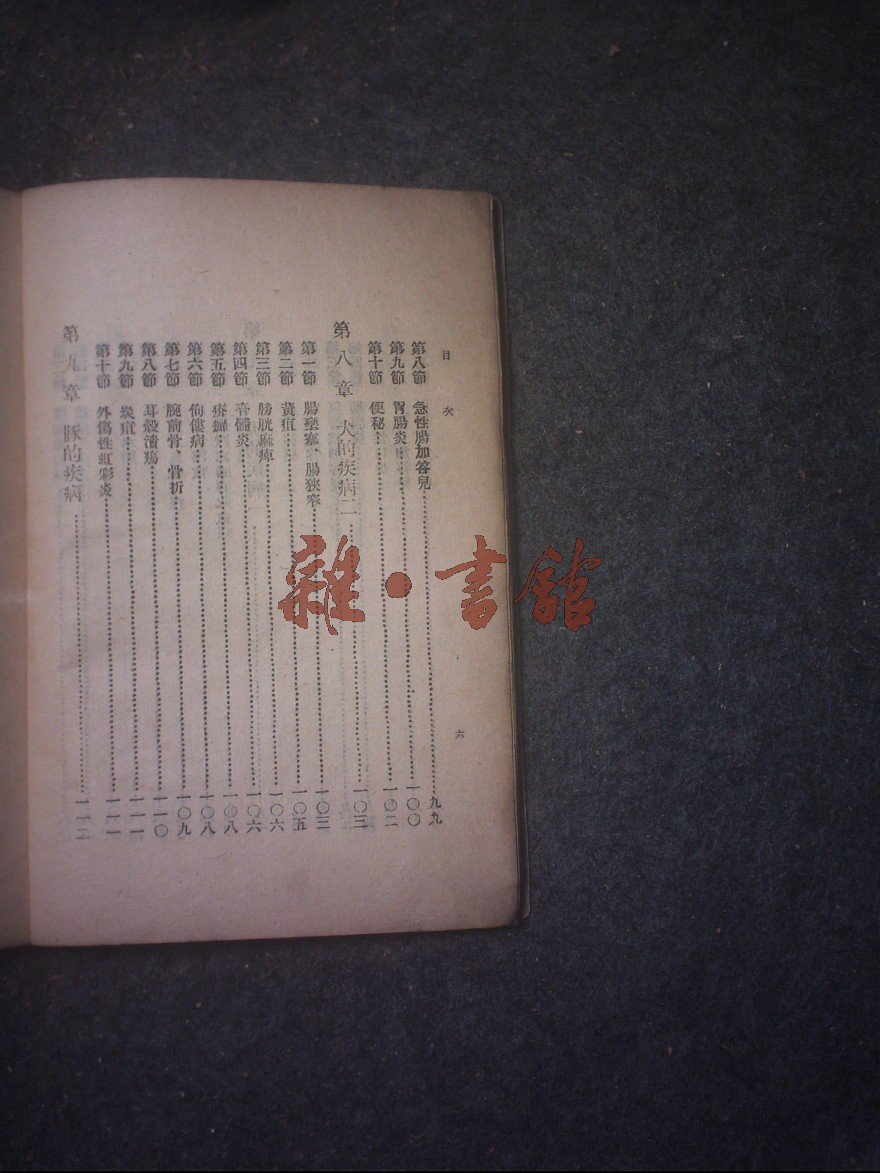 目次
六
第八節 急性腸加答兒 九九
第九節 胃腸炎 一〇〇
第十節 便秘 一〇二
第八章 犬的疾病二 一〇三
第一節 腸壅塞、腸狹窄 一〇三
第二節 黃疸 一〇五
第三節 膀胱麻痺 一〇六
第四節 脊髓炎 一〇六
第五節 疥癬 一〇八
第六節 佝僂病 一〇八
第七節 腕前骨、骨折 一〇九
第八節 耳殼潰瘍 一一〇
第九節 炭疽 一一一
第十節 外傷性虹彩炎 一一一
第九章 豚的疾病 一一二
雜·書館